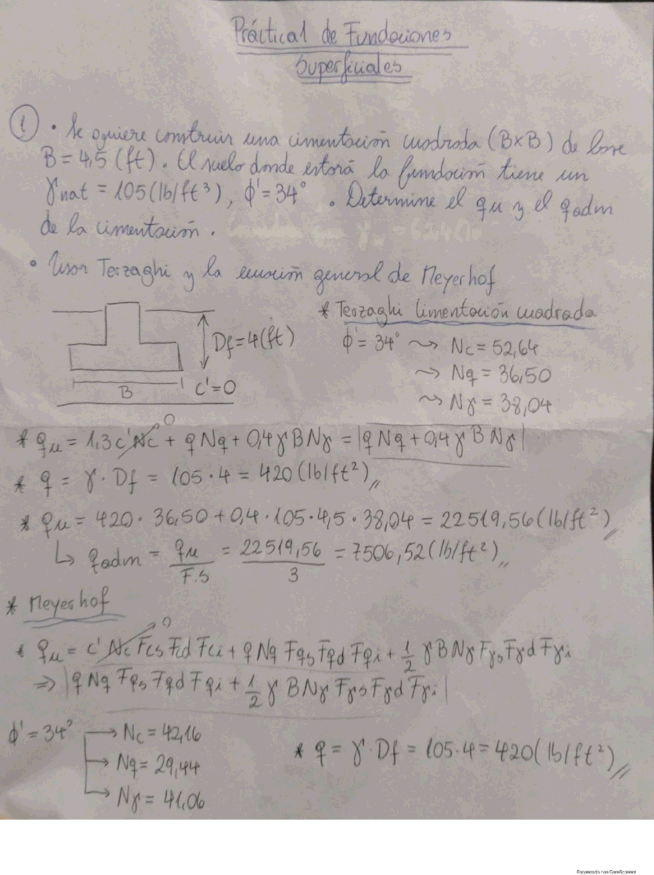 Práctical de Fundaciones
Superficiales
① • Se quiere construir una cimentación cuadrada (B×B) de base
B = 4,5 (ft). El suelo donde estará la fundación tiene un
γnat = 105 (lb/ft³), ϕ' = 34°. Determine el qu y el qadm
de la cimentación.
• Usar Terzaghi y la ecuación general de Meyerhof
* Terzaghi Cimentación cuadrada
Df = 4 (ft)
B
c' = 0
ϕ' = 34° ⇝ Nc = 52,64
⇝ Nq = 36,50
⇝ Nγ = 38,04
* qu = 1,3 c' Nc + q Nq + 0,4 γ B Nγ = |q Nq + 0,4 γ B Nγ|
0
* q = γ · Df = 105 · 4 = 420 (lb/ft²)//
* qu = 420 · 36,50 + 0,4 · 105 · 4,5 · 38,04 = 22519,56 (lb/ft²)//
↳ qadm = qu/F.S = 22519,56/3 = 7506,52 (lb/ft²)//
* Meyerhof
0
* qu = c' Nc Fcs Fcd Fci + q Nq Fqs Fqd Fqi + 1/2 γ B Nγ Fγs Fγd Fγi
⇒ |q Nq Fqs Fqd Fqi + 1/2 γ B Nγ Fγs Fγd Fγi|
ϕ' = 34° → Nc = 42,16
→ Nq = 29,44
→ Nγ = 41,06
* q = γ · Df = 105 · 4 = 420 (lb/ft²)//